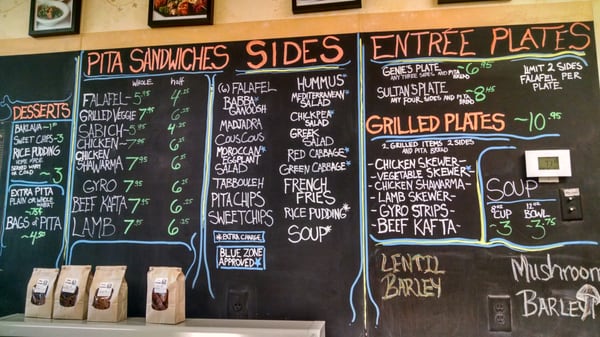 DESSERTS
BAKLAVA-1
SWEET CHIPS-3
RICE PUDDING
SERVED WARM
OR COLD
~3
EXTRA PITA
PLAIN OR WHOLE
WHEAT
BAGS OF PITA
~4.50
PITA SANDWICHES
WHOLE HALF
FALAFEL-5.95 4.25
GRILLED VEGGIE 7.95 6.25
SABICH-5.95 4.25
CHICKEN-7.95 6.25
CHICKEN
SHAWARMA 7.95 6.25
GYRO 7.95 6.25
BEEF KAFTA 7.95 6.25
LAMB 7.95 6.25
SIDES
(6) FALAFEL
BABBA*
GANOUSH
MADJADRA
COUSCOUS
MOROCCAN*
EGGPLANT
SALAD
TABBOULEH
PITA CHIPS
SWEET CHIPS
*EXTRA CHARGE
BLUE ZONE
APPROVED*
HUMMUS*
MEDITERRANEAN*
SALAD
CHICKPEA*
SALAD
GREEK
SALAD
RED CABBAGE*
GREEN CABBAGE*
FRENCH
FRIES
RICE PUDDING*
SOUP*
ENTRÉE PLATES
GENIE'S PLATE ~6.95
ANY THREE SIDES AND PITA
BREAD
SULTAN'S PLATE ~8.45
ANY FOUR SIDES AND PITA
BREAD
LIMIT 2 SIDES
FALAFEL PER
PLATE
GRILLED PLATES ~10.95
2 GRILLED ITEMS 2 SIDES
AND PITA BREAD
-CHICKEN SKEWER-
-VEGETABLE SKEWER*
-CHICKEN SHAWARMA-
-LAMB SKEWER-
-GYRO STRIPS-
-BEEF KAFTA-
SOUP
CUP 12oz BOWL
~3 ~3.75
LENTIL
BARLEY
MUSHROOM
BARLEY